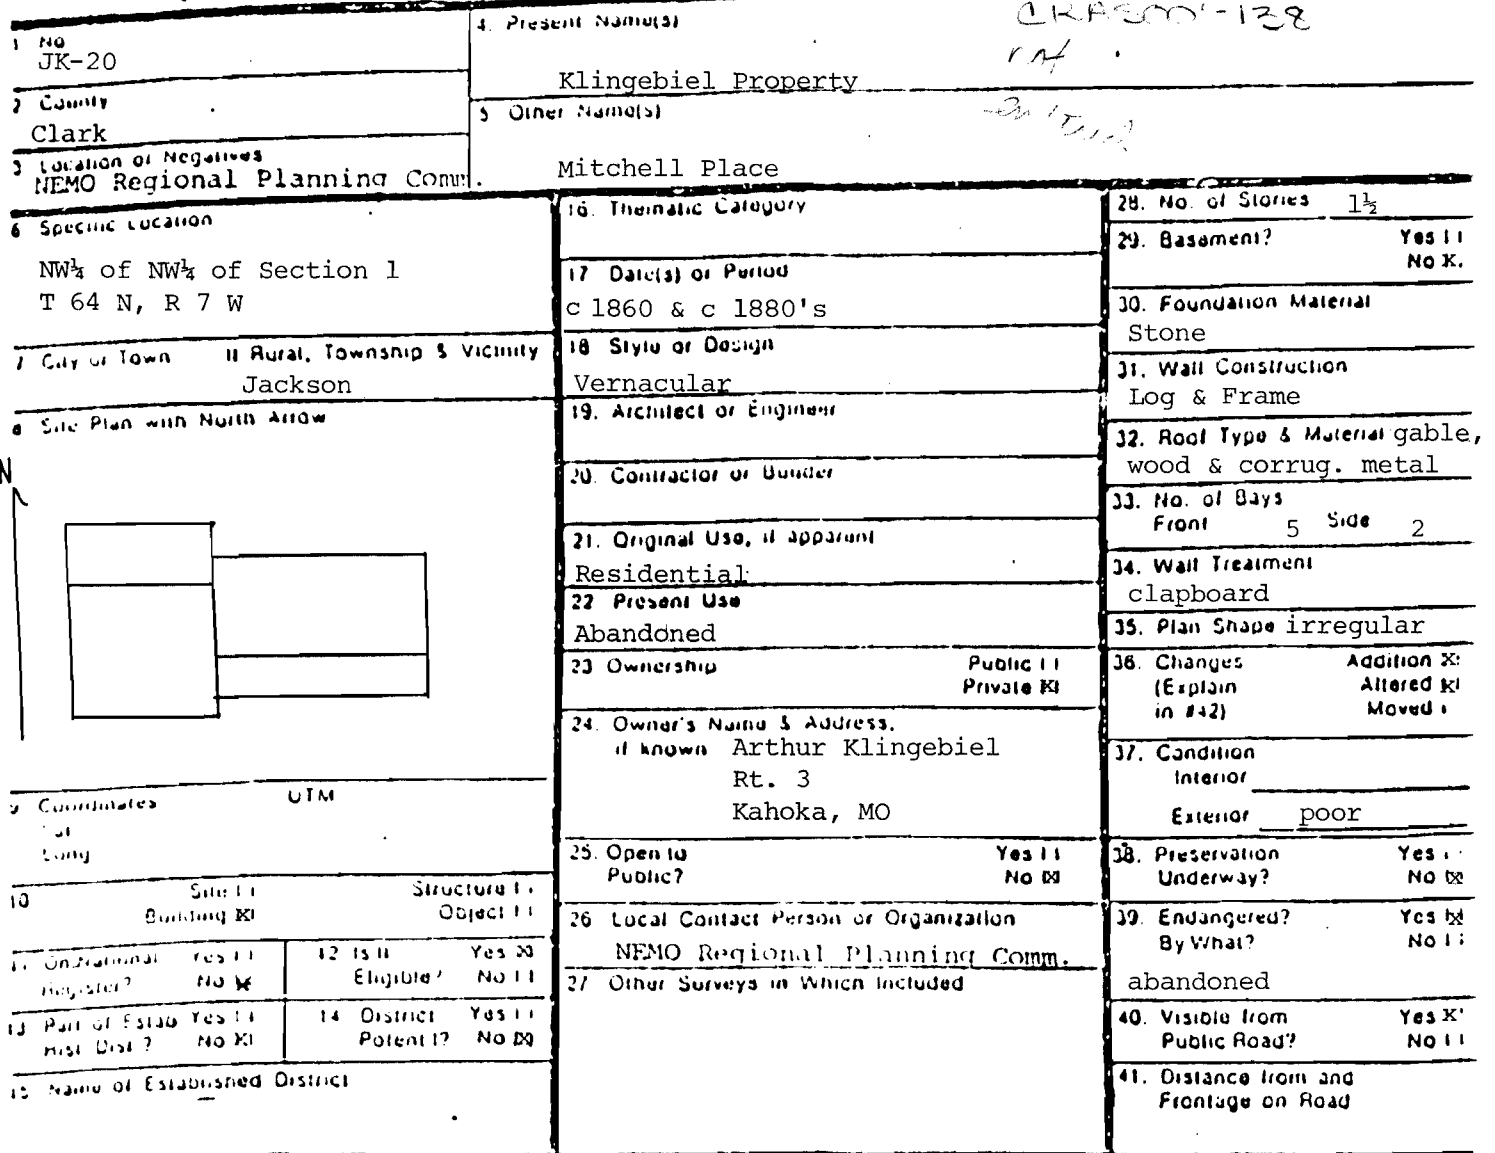 1 No
JK-20
2 County
Clark
3 Location of Negatives
NEMO Regional Planning Comm.
4. Present Name(s)
Klingebiel Property
5 Other Name(s)
Mitchell Place
6 Specific Location
NW¼ of NW¼ of Section 1
T 64 N, R 7 W
7 City or Town If Rural, Township & Vicinity
Jackson
8 Site Plan with North Arrow
N
9 Coordinates UTM
Lat
Long
10 Site Structure
Building X Object
11 On National Yes
Register? No X
12 Is It Yes X
Eligible? No
13 Part of Estab Yes
Hist. Dist.? No X
14 District Yes
Potent'l? No X
15 Name of Established District
16. Thematic Category
17 Date(s) or Period
c 1860 & c 1880's
18 Style or Design
Vernacular
19. Architect or Engineer
20. Contractor or Builder
21. Original Use, if apparent
Residential
22 Present Use
Abandoned
23 Ownership Public
Private X
24. Owner's Name & Address,
if known Arthur Klingebiel
Rt. 3
Kahoka, MO
25. Open to Yes
Public? No X
26 Local Contact Person or Organization
NEMO Regional Planning Comm.
27 Other Surveys in Which Included
28. No. of Stories 1½
29. Basement? Yes
No X
30. Foundation Material
Stone
31. Wall Construction
Log & Frame
32. Roof Type & Material gable,
wood & corrug. metal
33. No. of Bays
Front 5 Side 2
34. Wall Treatment
clapboard
35. Plan Shape irregular
36. Changes Addition X
(Explain Altered X
in #42) Moved
37. Condition
Interior
Exterior poor
38. Preservation Yes
Underway? No X
39. Endangered? Yes X
By What? No
abandoned
40. Visible from Yes X
Public Road? No
41. Distance from and
Frontage on Road